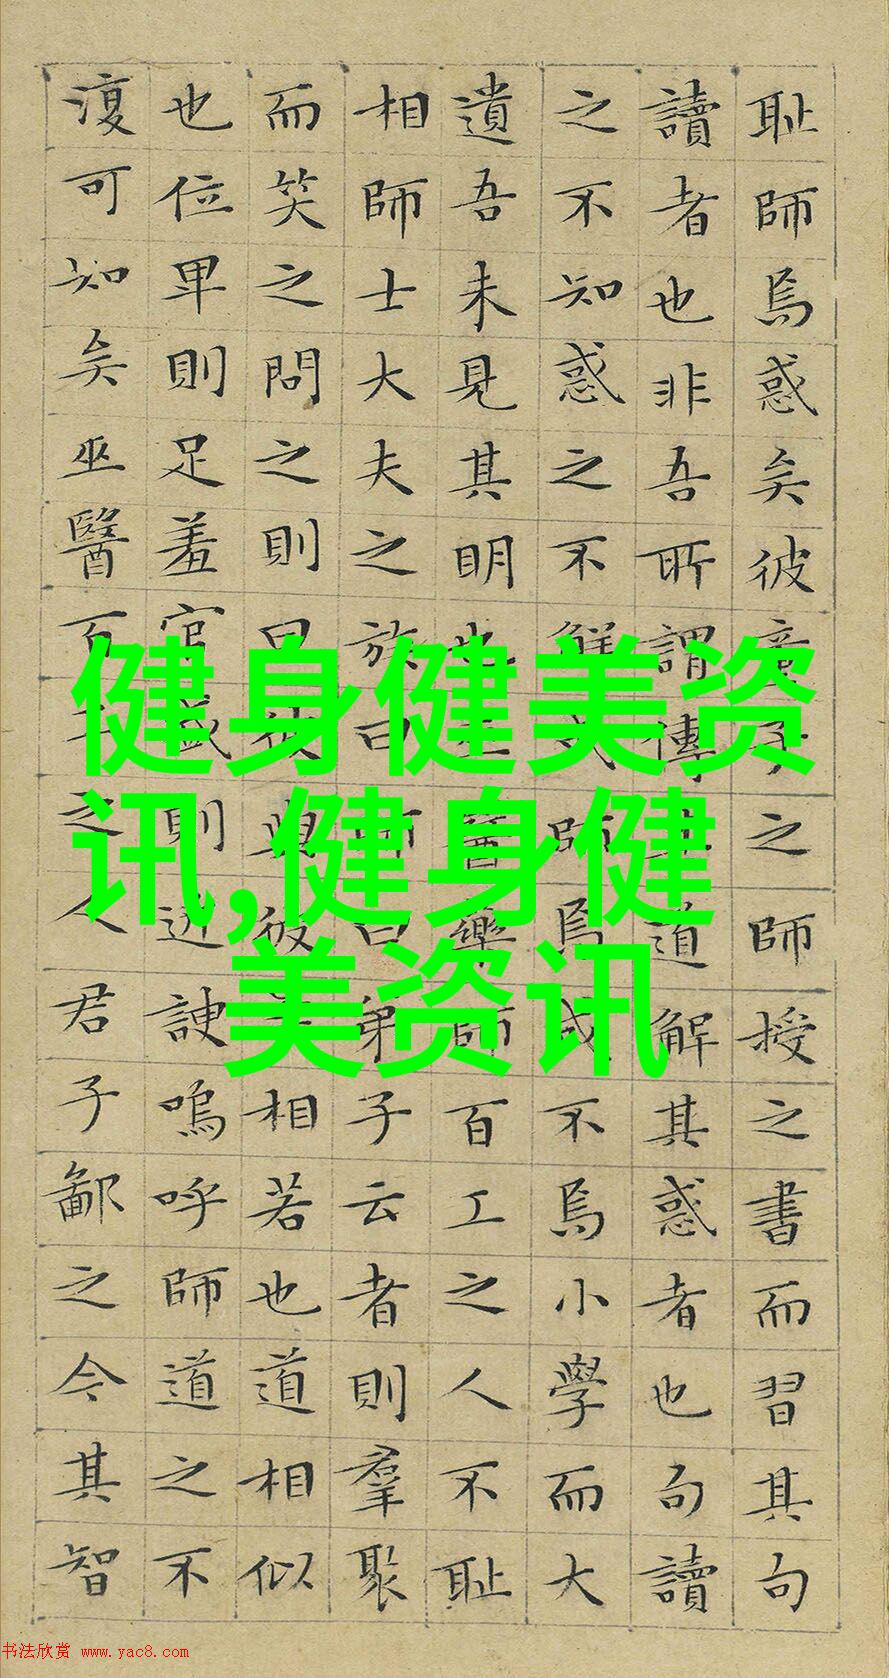 耻師焉惑矣彼童子之師授之書而習其句
讀者也非吾所謂傳其道解其惑者也句讀
之不知惑之不解或師焉或不焉小學而大
遺吾未見其明也巫醫樂師百工之人不耻
相師士大夫之族曰師曰弟子云者則羣聚
而笑之問之則曰彼與彼年相若也道相似
也位卑則足羞官盛則近諛嗚呼師道之不
復可知矣巫醫百工之人君子鄙之今其智
健身健美资
讯,健身健
美资讯
书法欣赏 www.yac8.com